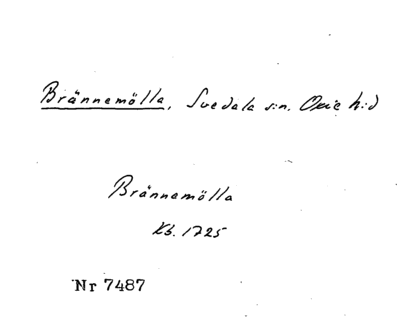 Brännemölla, Svedala s:n. Oxie h:d
Brännemölla
Kb. 1725
Nr 7487